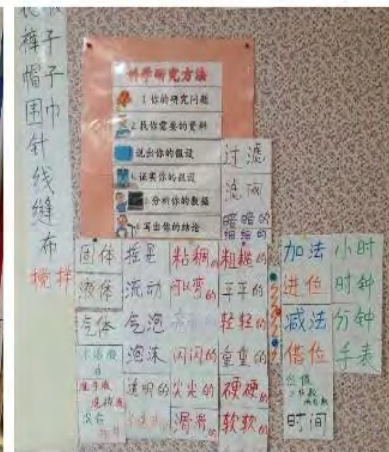 裤子
帽子
围巾
针
线
缝
布
搅拌
科学研究方法
1.你的研究问题
2.找你需要的资料
3.说出你的假设
4.证实你的假设
5.分析你的数据
6.写出你的结论
过滤
滤网
暗暗的
细细的
固体
液体
气体
挥发
流动
气泡
泡沫
透明的
粘稠的
可以弯的
亮亮的
闪闪的
尖尖的
滑滑的
粗糙的
平平的
轻轻的
重重的
硬硬的
软软的
加法
进位
减法
借位
位值
时间
小时
时钟
分钟
手表